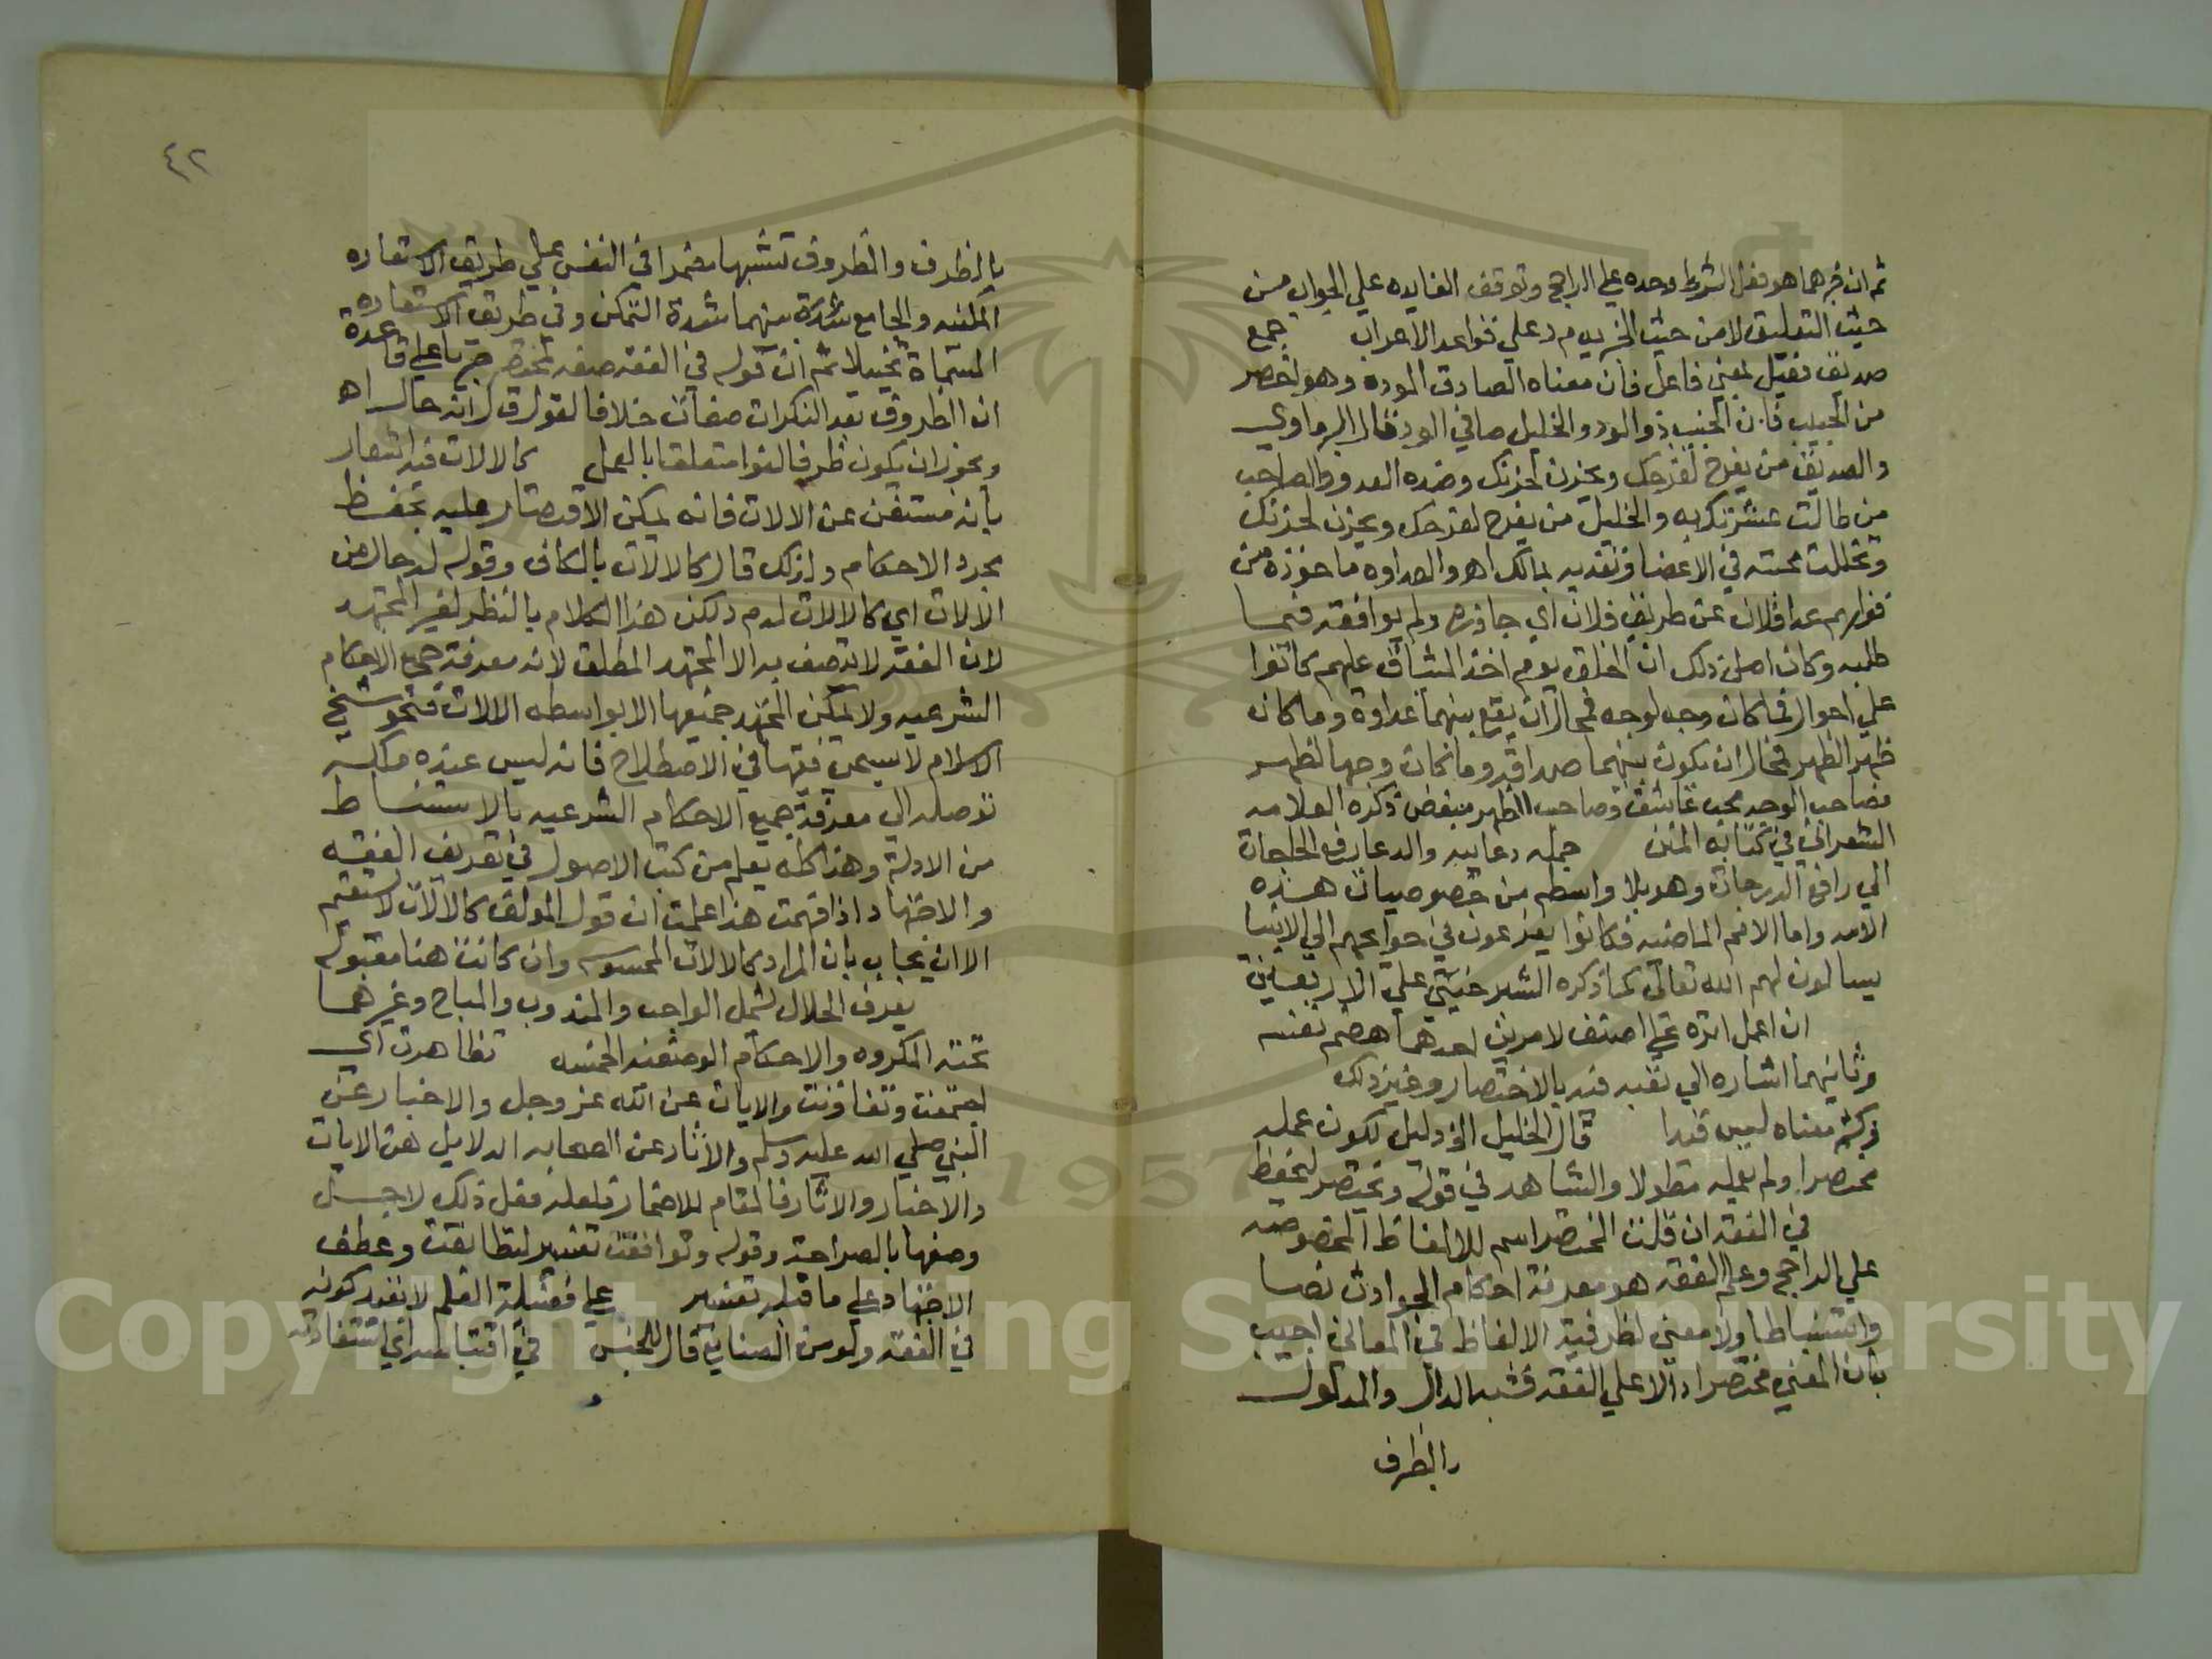 ثم ان خبرهما هو فعل الشرط وحده علي الراجح وتوقف الفايده علي الجواب من
حيث التعليق لا من حيث الخبريه م د علي قواعد الاعراب جمع
صديق فعيل بمعني فاعل فان معناه الصادق الموده وهو اخص
من الحبيب فان الحبيب ذو الود والخليل صافي الود قال البرماوي
والصديق من يفرح لفرحك ويحزن لحزنك وضده العدو والصاحب
من طالت عشرتك به والخليل من يفرح لفرحك ويحزن لحزنك
وتخللت محبته في الاعضا وتفديه بمالك اهـ والعداوه ماخوذه من
قولهم عدا فلان عن طريق فلان اي جاوزه ولم يوافقه فيما
طلبه وكان اصل ذلك ان الخلق يوم اخذ الميثاق عليهم كانوا
علي احوال فما كان وجه لوجه فمحال ان يقع بينهما عداوة وما كان
ظهر الظهر فمحال ان يكون بينهما صداقه وما كان وجها لظهر
فصاحب الوجه محب عاشق وصاحب الظهر مبغض ذكره العلامه
الشعراني في كتابه المنن جمله دعاييه والدعا رفع الحاجات
الي رافع الدرجات وهو بلا واسطه من خصوصيات هذه
الامه واما الامم الماضيه فكانوا يفزعون في حوايجهم الي الانبيا
يسالون لهم الله تعالي كما ذكره الشبرخيتي علي الاربعين
ان اعمل اثره علي اصنف لامرين احدهما هضم نفسه
وثانيهما اشاره الي تعبه فيه بالاختصار وغير ذلك
وكثر معناه ليس قيدا قال الخليل الخ دليل لكون عمله
مختصرا ولم يعمله مطولا والشاهد في قوله ويختصر ليحفظ
في الفقه ان قلت المختصر اسم للالفاظ المخصوصه
علي الراجح وعلم الفقه هو معرفة احكام الحوادث نصا
واستنباطا ولا معني لظرفية الالفاظ في المعاني اجيب
بان المعني مختصرا دالا علي الفقه فشبه الدال والمدلول
بالظرف
٤٢
بالظرف والمظروف تشبيها مضمرا في النفس علي طريق الاستعاره
المكنيه والجامع بينهما شدة التمكن وفي طريق الاستعاره
المسماة تخييلا ثم ان قوله في الفقه صفه لمختصر جريا علي قاعدة
ان الظروف بعد النكرات صفات خلافا لقول ق ل انه حال اهـ
ويجوز ان يكون ظرفا لغوا متعلقا بالعمل كالالات فيه اشعار
بانه مستغن عن الالات فانه يمكن الاقتصار عليه بحفظ
مجرد الاحكام ولذلك قال كالالات بالكاف وقوله له حال من
الالات اي كالالات له م د لكن هذا الكلام بالنظر لغير المجتهد
لان الفقه لا يتصف به الا المجتهد المطلق لانه معرفة جميع الاحكام
الشرعيه ولا يمكن المجتهد جميعها الا بواسطه الالات فنحو شيخ
الاسلام لا يسمي فقيها في الاصطلاح فانه ليس عنده ملكه
توصله الي معرفة جميع الاحكام الشرعيه بالاستنباط
من الادلة وهذا كله يعلم من كتب الاصول في تعريف الفقه
والاجتهاد اذا فهمت هذا علمت ان قول المولف كالالات لا يستقيم
الا ان يجاب بان المراد كالالات المحسوسه وان كانت هنا معقوله
يعرف الحلال يشمل الواجب والمندوب والمباح وغيرهما
تحته المكروه والاحكام الوضعيه الخمسه تظاهرت اي
اجتمعت وتعاونت والايات عن الله عز وجل والاخبار عن
النبي صلي الله عليه وسلم والاثار عن الصحابه الدلايل هن الايات
والاخبار والاثار فالمقام للاضمار فلعله فعل ذلك لاجل
وصفها بالصراحة وقوله وتوافقت تفسير لتطابقت وعطف
الاجتهاد علي ما قبله تفسير علي فضيلة العلم لا بقيد كونه
في الفقه ولو من الصنايع قال للجنس في اقتباسه اي استفادته